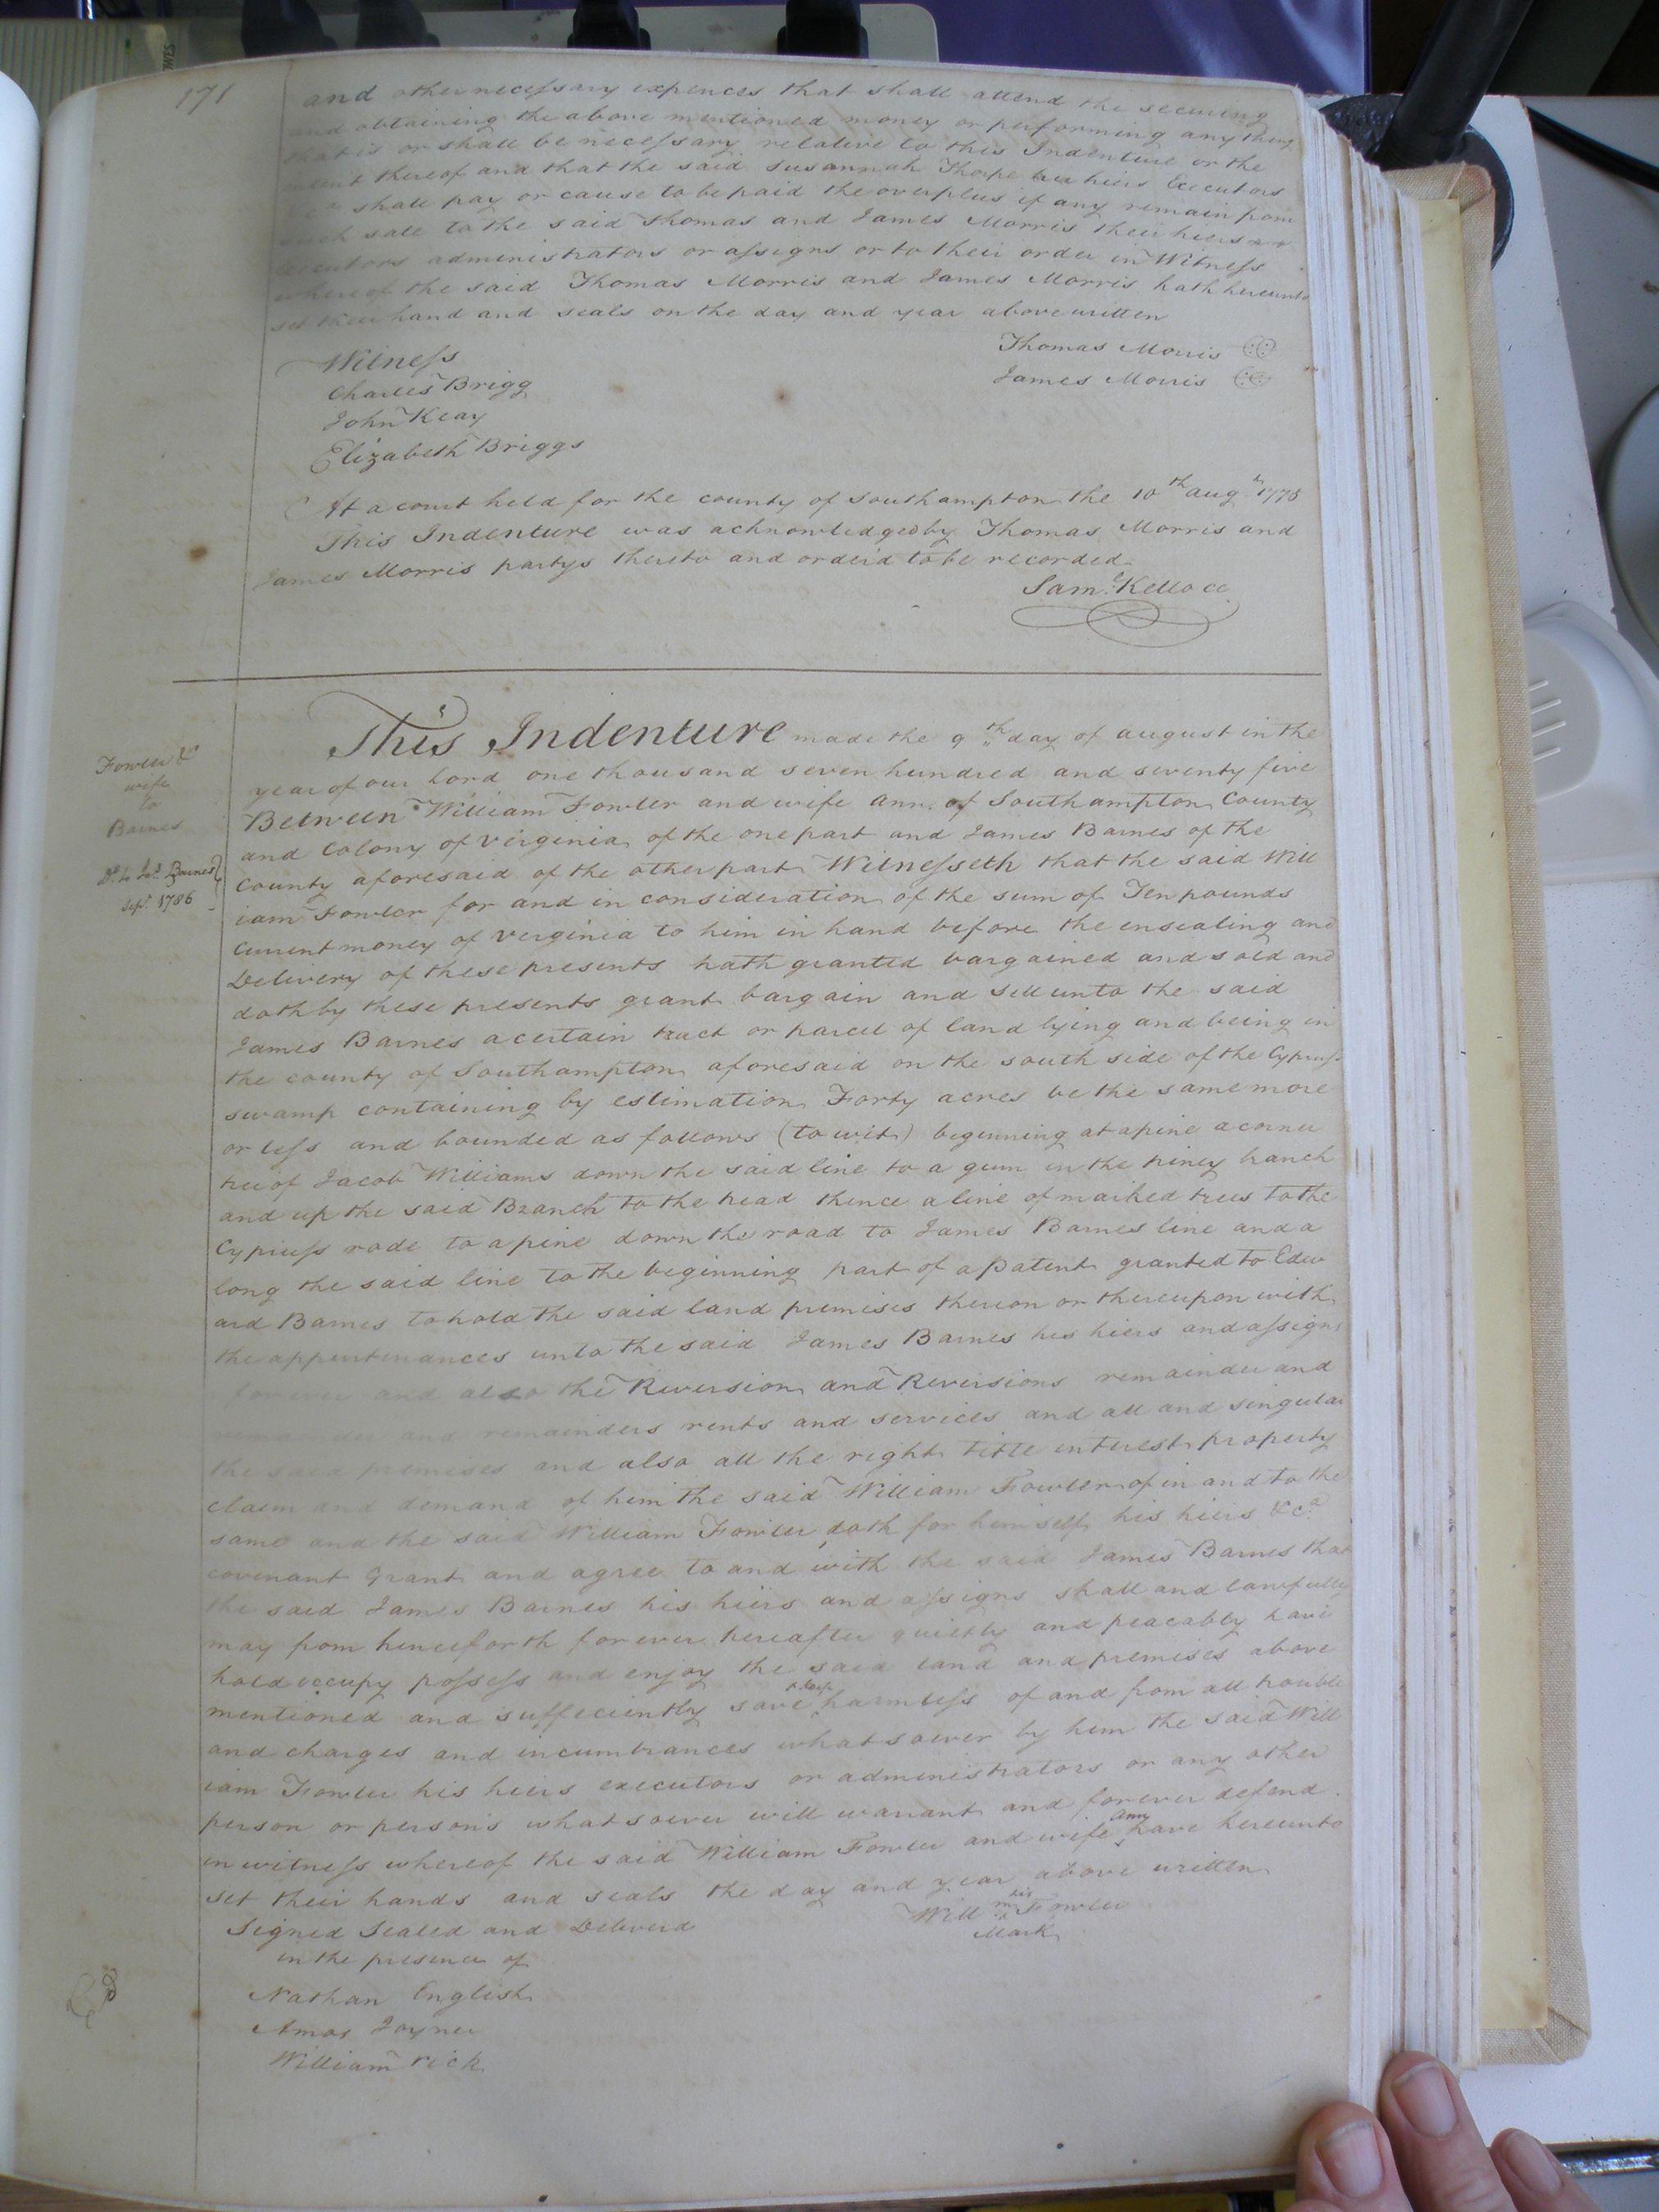 171
and other necessary expences that shall attend the securing
and obtaining the above mentioned money or performing any thing
that is or shall be necessary relative to this Indenture or the
intent thereof and that the said Susannah Thorpe her hiers Executors
&c.a shall pay or cause to be paid the overplus if any remain from
such sale to the said Thomas and James Morris their hiers
executors administrators or assigns or to their order in Witness
whereof the said Thomas Morris and James Morris hath hereunto
set their hand and seals on the day and year above written
Thomas Morris
James Morris
Witness
Charles Brigg
John Keay
Elizabeth Briggs
At a court held for the county of Southampton the 10th aug. 1775
This Indenture was acknowledged by Thomas Morris and
James Morris partys thereto and order'd to be recorded
Sam.l Kello cc
Fowler &
wife
to
Barnes
Dd. to Jas. Barnes
Sept. 1786
This Indenture made the 9th day of august in the
year of our Lord one thousand seven hundred and seventy five
Between William Fowler and wife ann of Southampton County
and Colony of virginia of the one part and James Barnes of the
County aforesaid of the other part Witnesseth that the said Will
iam Fowler for and in consideration of the sum of Ten pounds
Current money of virginia to him in hand before the ensealing and
Delivery of these presents hath granted bargained and sold and
doth by these presents grant bargain and sell unto the said
James Barnes a certain tract or parcel of land lying and being in
the county of Southampton aforesaid on the south side of the Cypress
swamp containing by estimation Forty acres be the same more
or less and bounded as follows (to wit) beginning at a pine a corner
tree of Jacob Williams down the said line to a gum in the piney branch
and up the said Branch to the head thence a line of marked trees to the
Cypress rode to a pine down the road to James Barnes line and a
long the said line to the beginning part of a patent granted to Edw
ard Barnes to hold the said land premises thereon or thereupon with
the appurtenances unto the said James Barnes his hiers and assigns
forever and also the Reversion and Reversions remainder and
remainder and remainders rents and services and all and singular
the said premises and also all the right title interest property
claim and demand of him the said William Fowler of in and to the
same and the said William Fowler doth for himself his hiers &c.a
covenant Grant and agree to and with the said James Barnes that
the said James Barnes his hiers and assigns shall and lawfully
may from henceforth forever hereafter quietly and peacably have
hold occupy possess and enjoy the said land and premises above
mentioned and sufficiently save & keep harmless of and from all trouble
and charges and incumbrances whatsoever by him the said Will
iam Fowler his hiers executors or administrators or any other
person or persons whatsoever will warrant and forever defend
in witness whereof the said William Fowler and wife ann have hereunto
set their hands and seals the day and year above written
Signed Sealed and Deliverd
Will his Fowler
Mark
in the presence of
Nathan English
Amos Joyner
William rick